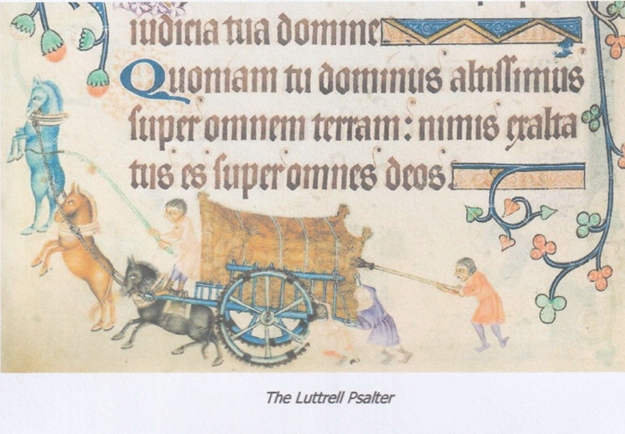 iudicia tua domine
Quoniam tu dominus altissimus
super omnem terram: nimis exalta
tus es super omnes deos.
The Luttrell Psalter